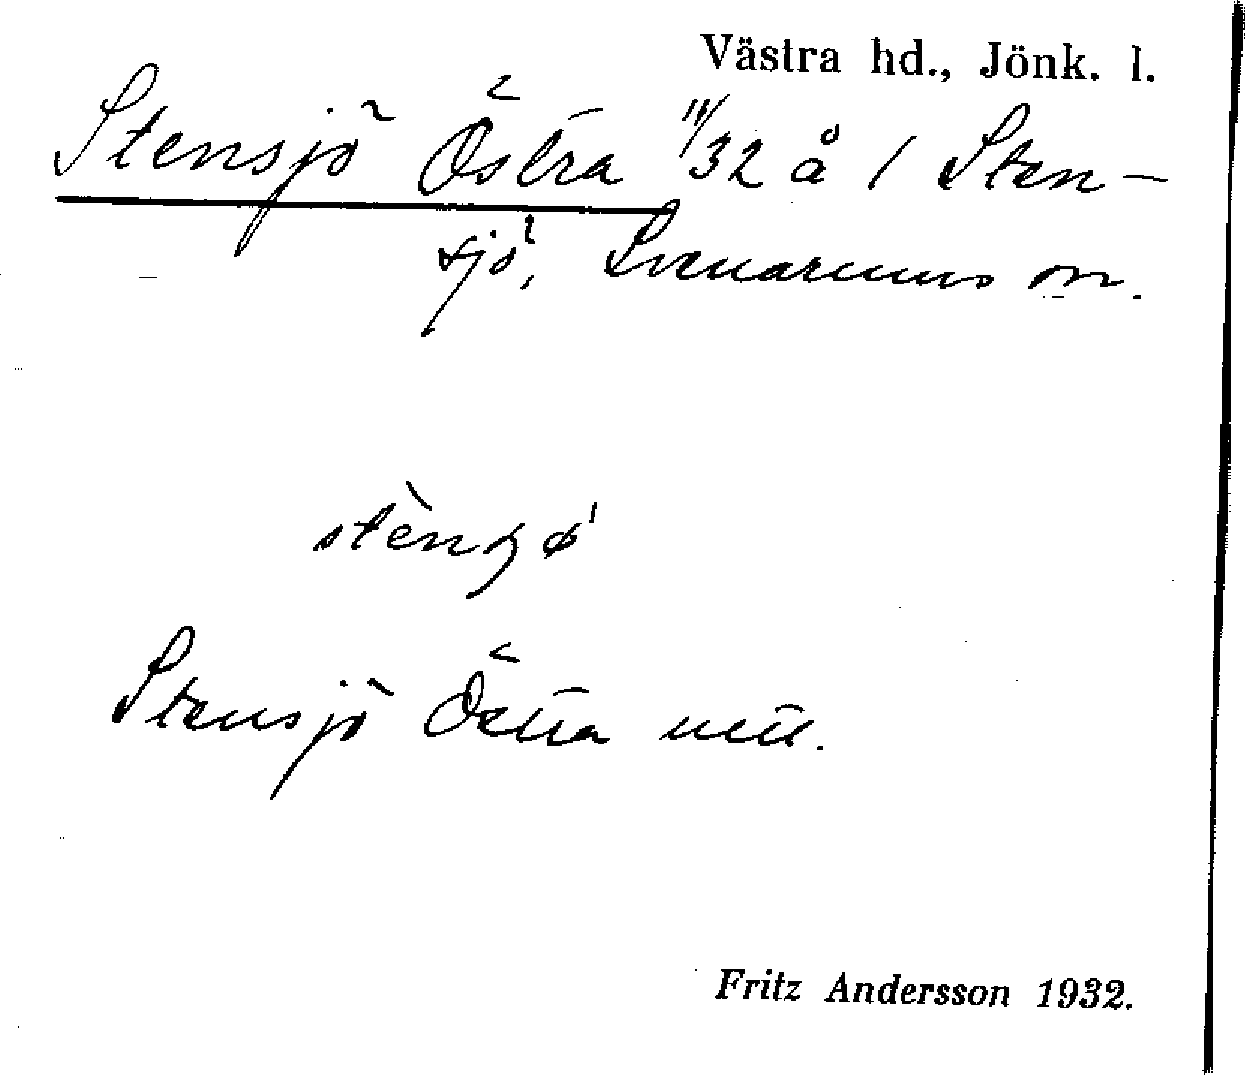 Västra hd., Jönk. l.
Stensjö Östra 11/32 å 1 Sten-
sjö, Svenarums sn.
Stensjö Östra mtl.
Fritz Andersson 1932.